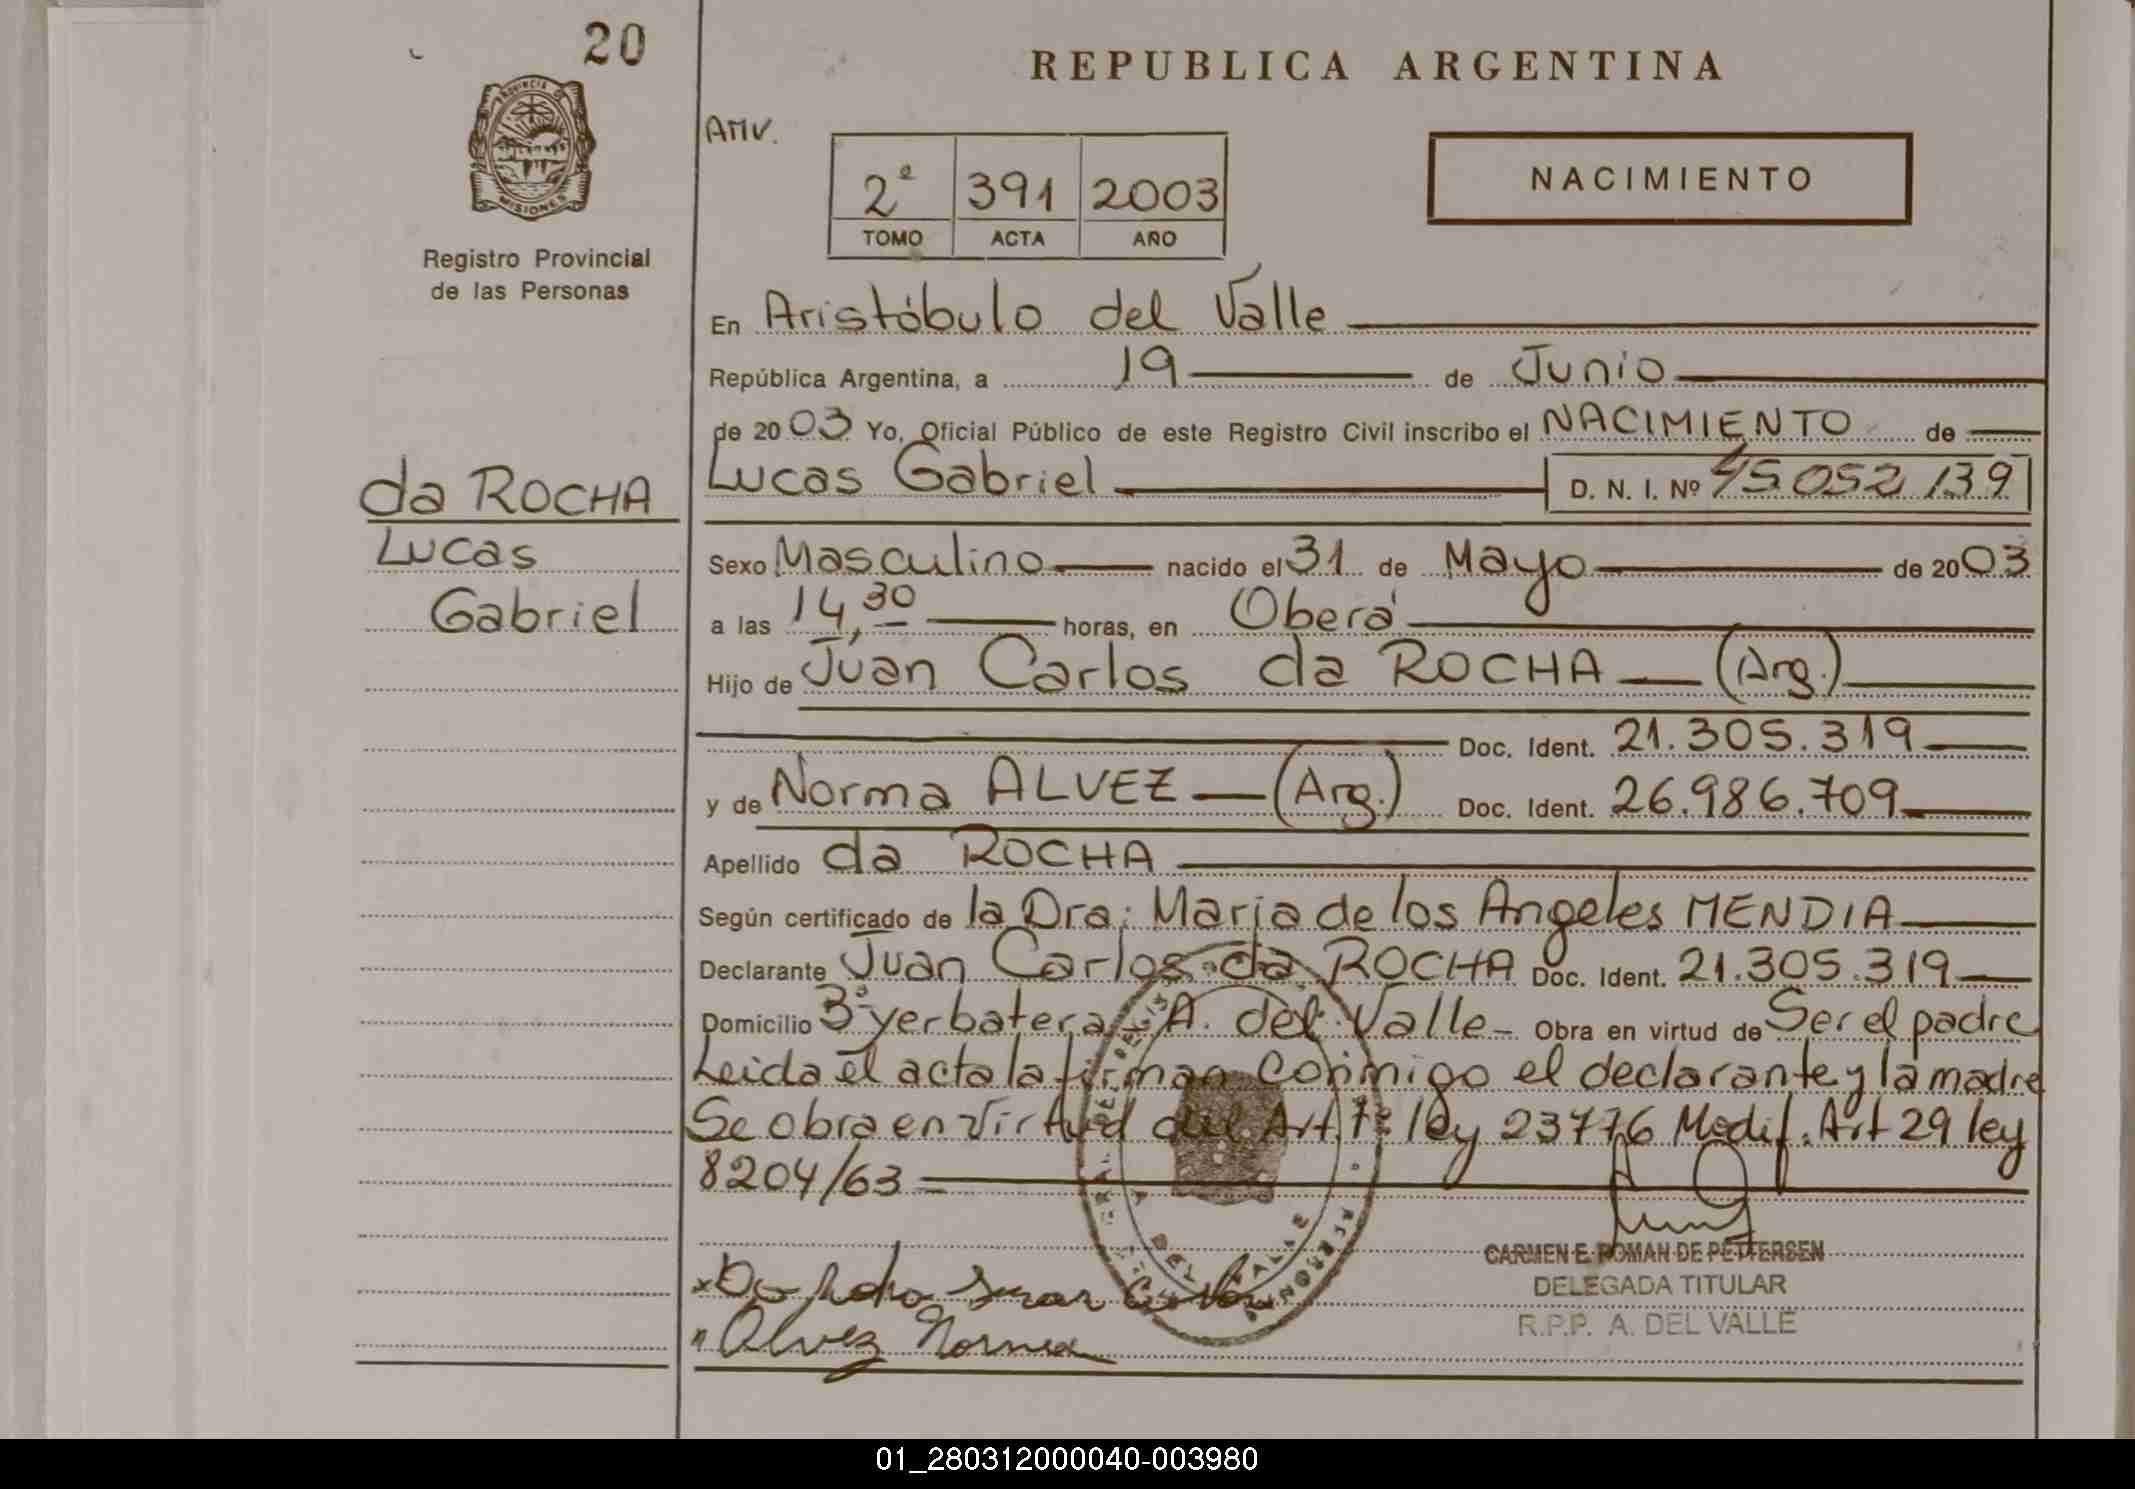 20
REPUBLICA ARGENTINA
PROVINCIA DE
MISIONES
Registro Provincial
de las Personas
AMV.
2º 391 2003
TOMO ACTA AÑO
NACIMIENTO
En Aristóbulo del Valle
República Argentina, a 19 de Junio
de 2003 Yo, Oficial Público de este Registro Civil inscribo el NACIMIENTO de
da ROCHA
Lucas
Gabriel
Lucas Gabriel D. N. I. Nº 45.052.139
Sexo Masculino nacido el 31 de Mayo de 2003
a las 14,30 horas, en Oberá
Hijo de Juan Carlos da ROCHA (Arg.)
Doc. Ident. 21.305.319
y de Norma ALVEZ (Arg.) Doc. Ident. 26.986.709
Apellido da ROCHA
Según certificado de la Dra: Maria de los Angeles MENDIA
Declarante Juan Carlos da ROCHA Doc. Ident. 21.305.319
Domicilio 3º yerbatera - A. del Valle - Obra en virtud de Ser el padre
Leida el acta la firman conmigo el declarante y la madre
Se obra en virtud del Art. 7º ley 23776 Modif. Art 29 ley
8204/63 =
Da Rocha Juan Carlos
Alvez Norma
CARMEN E. ROMAN DE PETTERSEN
DELEGADA TITULAR
R.P.P. A. DEL VALLE
01_280312000040-003980